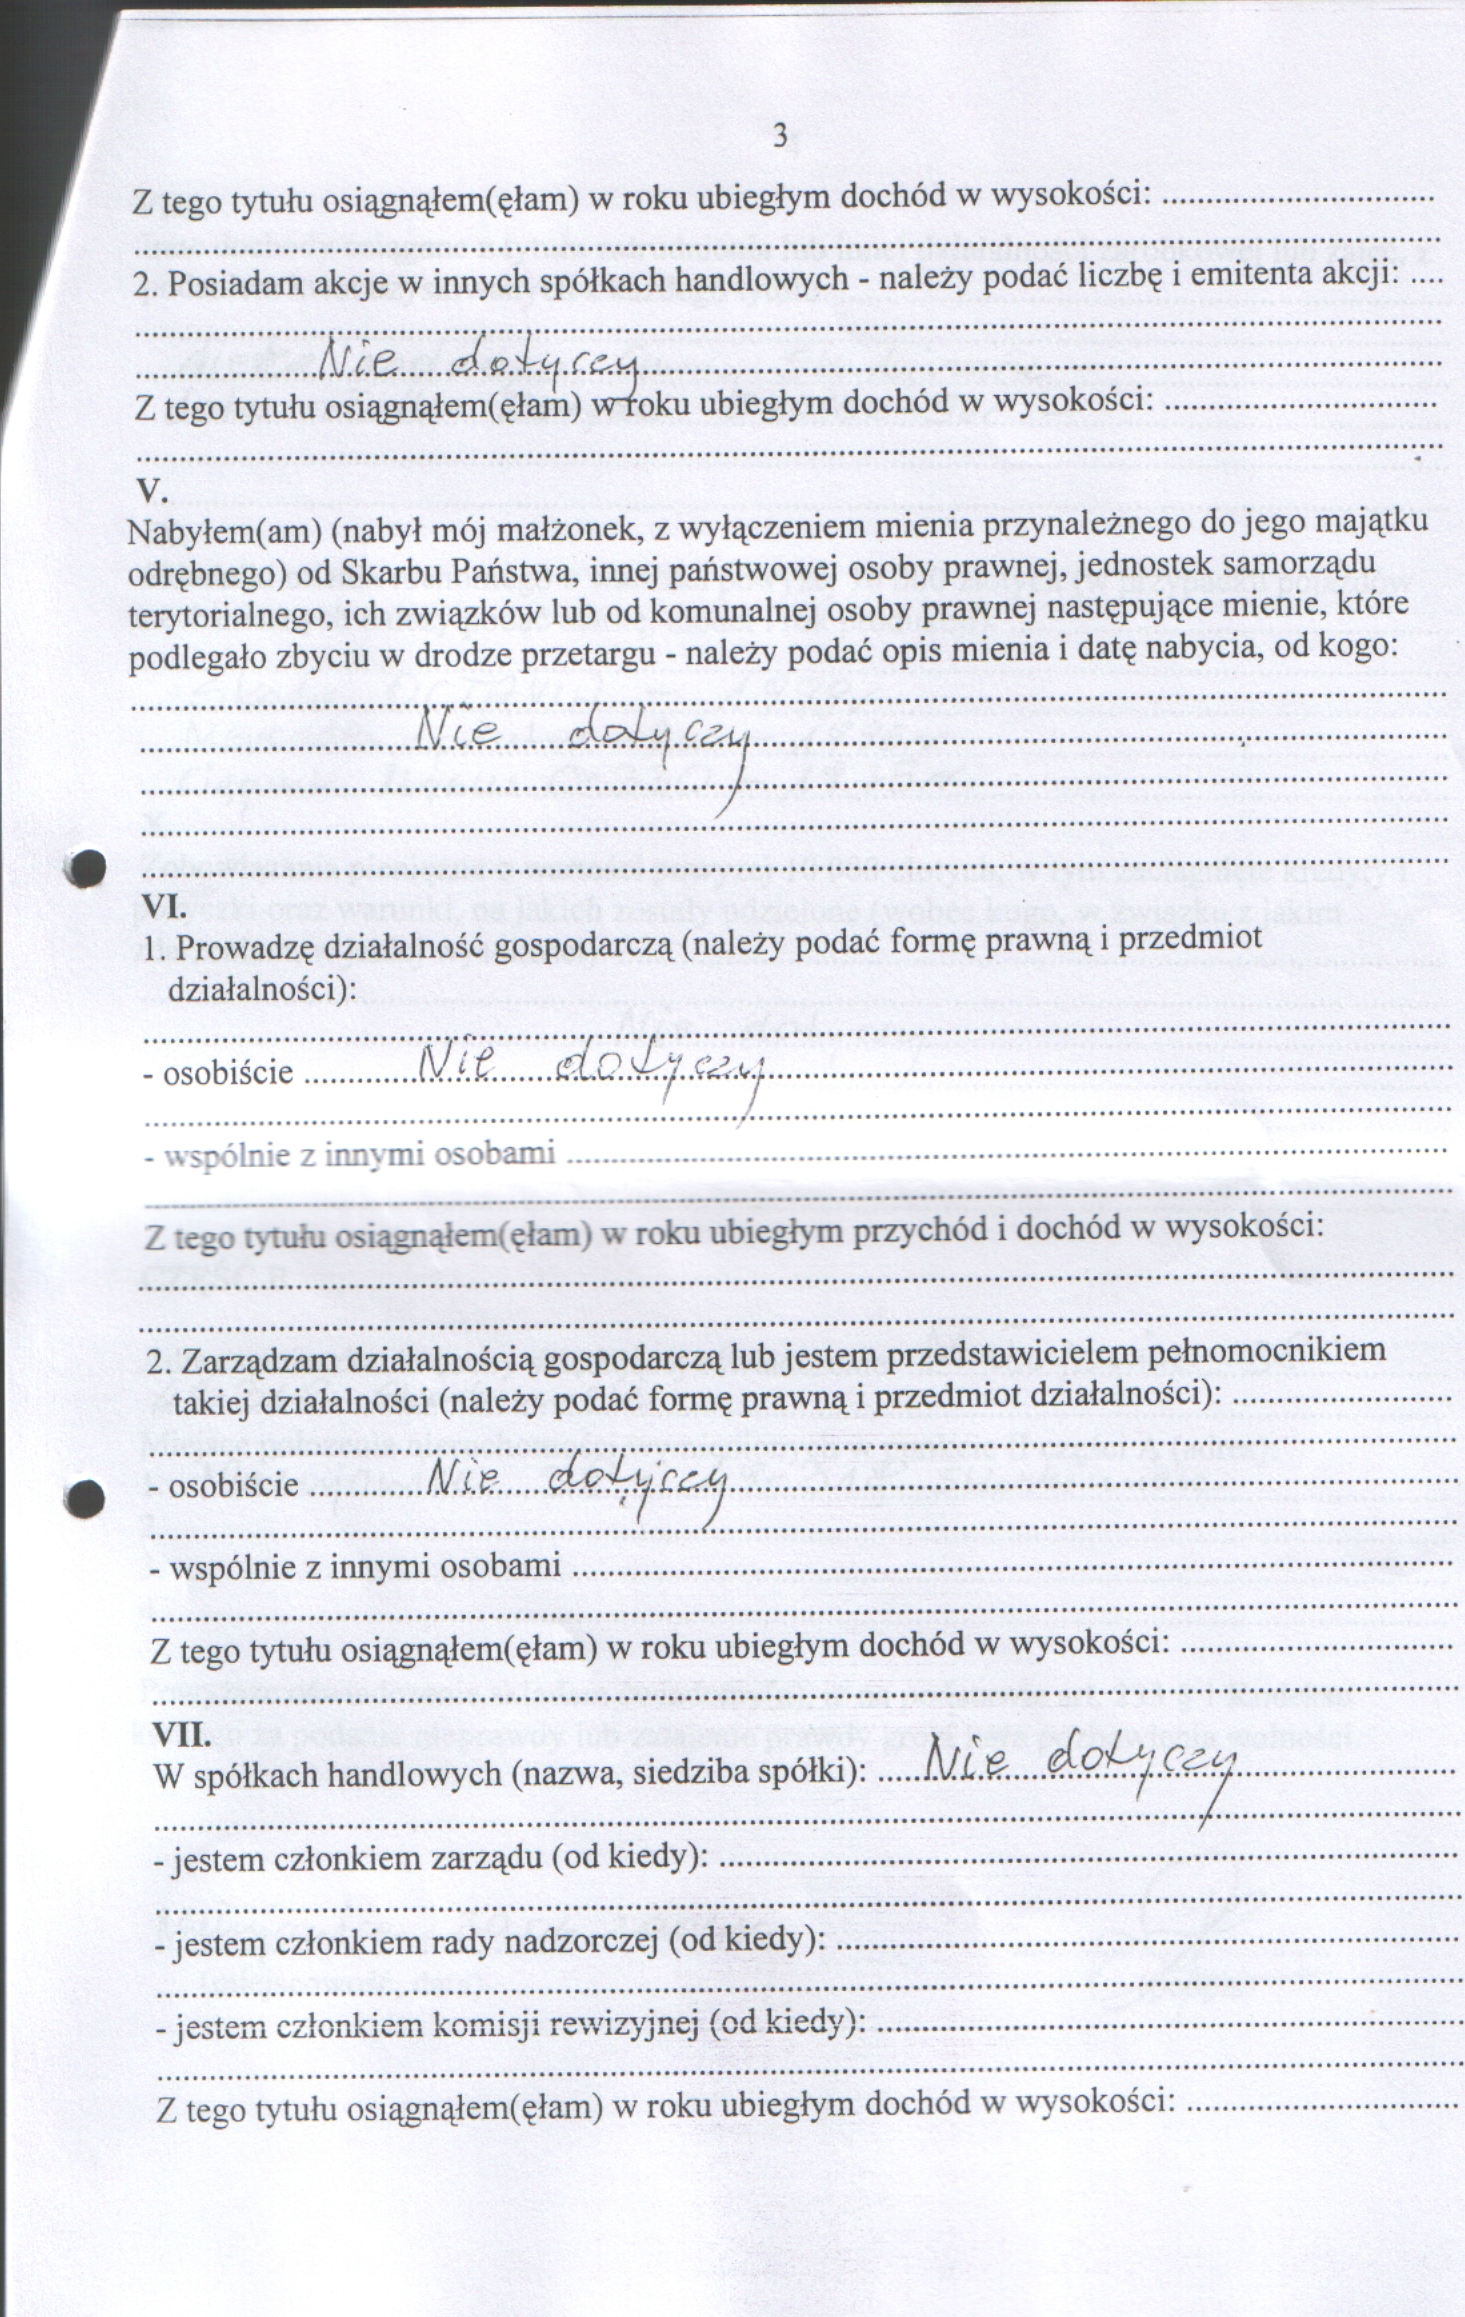 3
Z tego tytułu osiągnąłem(ęłam) w roku ubiegłym dochód w wysokości: ..............................
..............................
2. Posiadam akcje w innych spółkach handlowych - należy podać liczbę i emitenta akcji: ....
..............................
Nie dotyczy
Z tego tytułu osiągnąłem(ęłam) w roku ubiegłym dochód w wysokości: ..............................
..............................
V.
Nabyłem(am) (nabył mój małżonek, z wyłączeniem mienia przynależnego do jego majątku
odrębnego) od Skarbu Państwa, innej państwowej osoby prawnej, jednostek samorządu
terytorialnego, ich związków lub od komunalnej osoby prawnej następujące mienie, które
podlegało zbyciu w drodze przetargu - należy podać opis mienia i datę nabycia, od kogo:
..............................
Nie dotyczy
..............................
..............................
..............................
VI.
1. Prowadzę działalność gospodarczą (należy podać formę prawną i przedmiot
działalności):
..............................
- osobiście ............ Nie dotyczy
..............................
- wspólnie z innymi osobami ..............................
..............................
Z tego tytułu osiągnąłem(ęłam) w roku ubiegłym przychód i dochód w wysokości:
..............................
..............................
2. Zarządzam działalnością gospodarczą lub jestem przedstawicielem pełnomocnikiem
takiej działalności (należy podać formę prawną i przedmiot działalności): ..............................
..............................
- osobiście ............ Nie dotyczy
..............................
- wspólnie z innymi osobami ..............................
..............................
Z tego tytułu osiągnąłem(ęłam) w roku ubiegłym dochód w wysokości: ..............................
..............................
VII.
W spółkach handlowych (nazwa, siedziba spółki): ..... Nie dotyczy
..............................
- jestem członkiem zarządu (od kiedy): ..............................
..............................
- jestem członkiem rady nadzorczej (od kiedy): ..............................
..............................
- jestem członkiem komisji rewizyjnej (od kiedy): ..............................
..............................
Z tego tytułu osiągnąłem(ęłam) w roku ubiegłym dochód w wysokości: ..............................